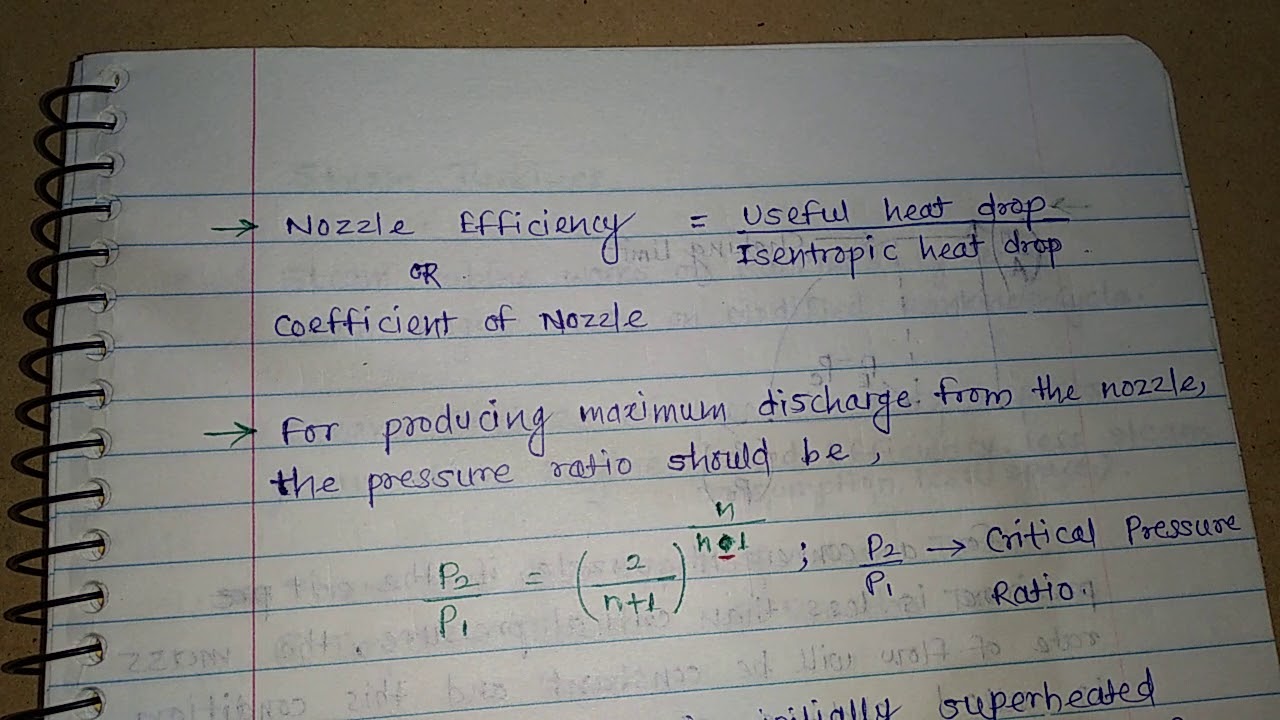 → Nozzle Efficiency = Useful heat drop / Isentropic heat drop.
OR
Coefficient of Nozzle
→ For producing maximum discharge from the nozzle,
the pressure ratio should be,
P₂/P₁ = (2/(n+1))^(n/(n-1)) ; P₂/P₁ → Critical Pressure
Ratio.
initially superheated